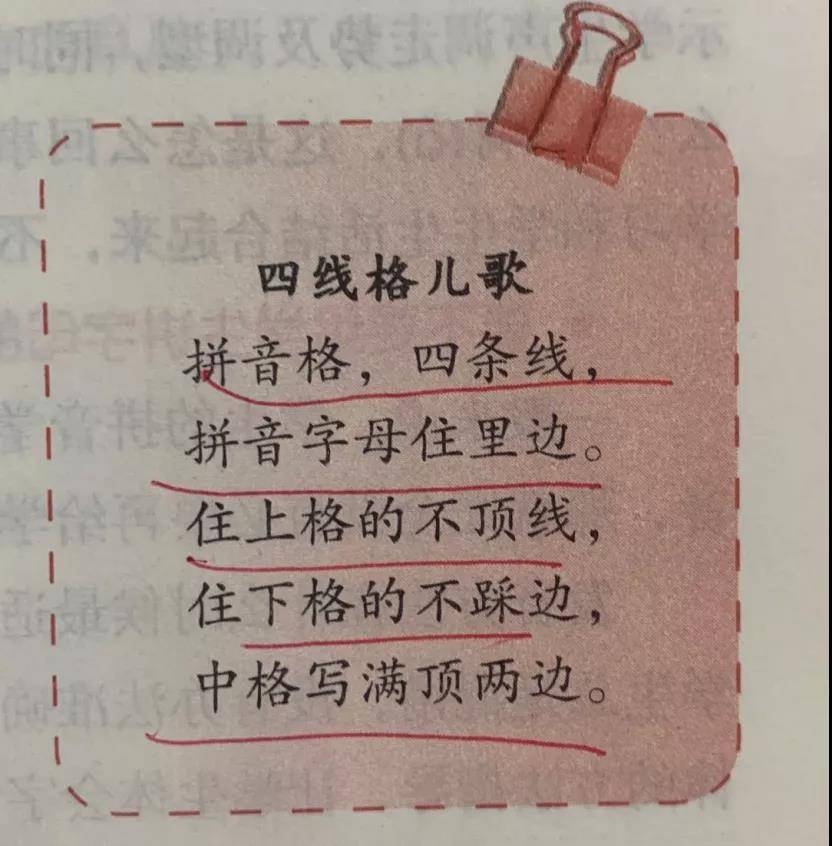 四线格儿歌
拼音格，四条线，
拼音字母住里边。
住上格的不顶线，
住下格的不踩边，
中格写满顶两边。